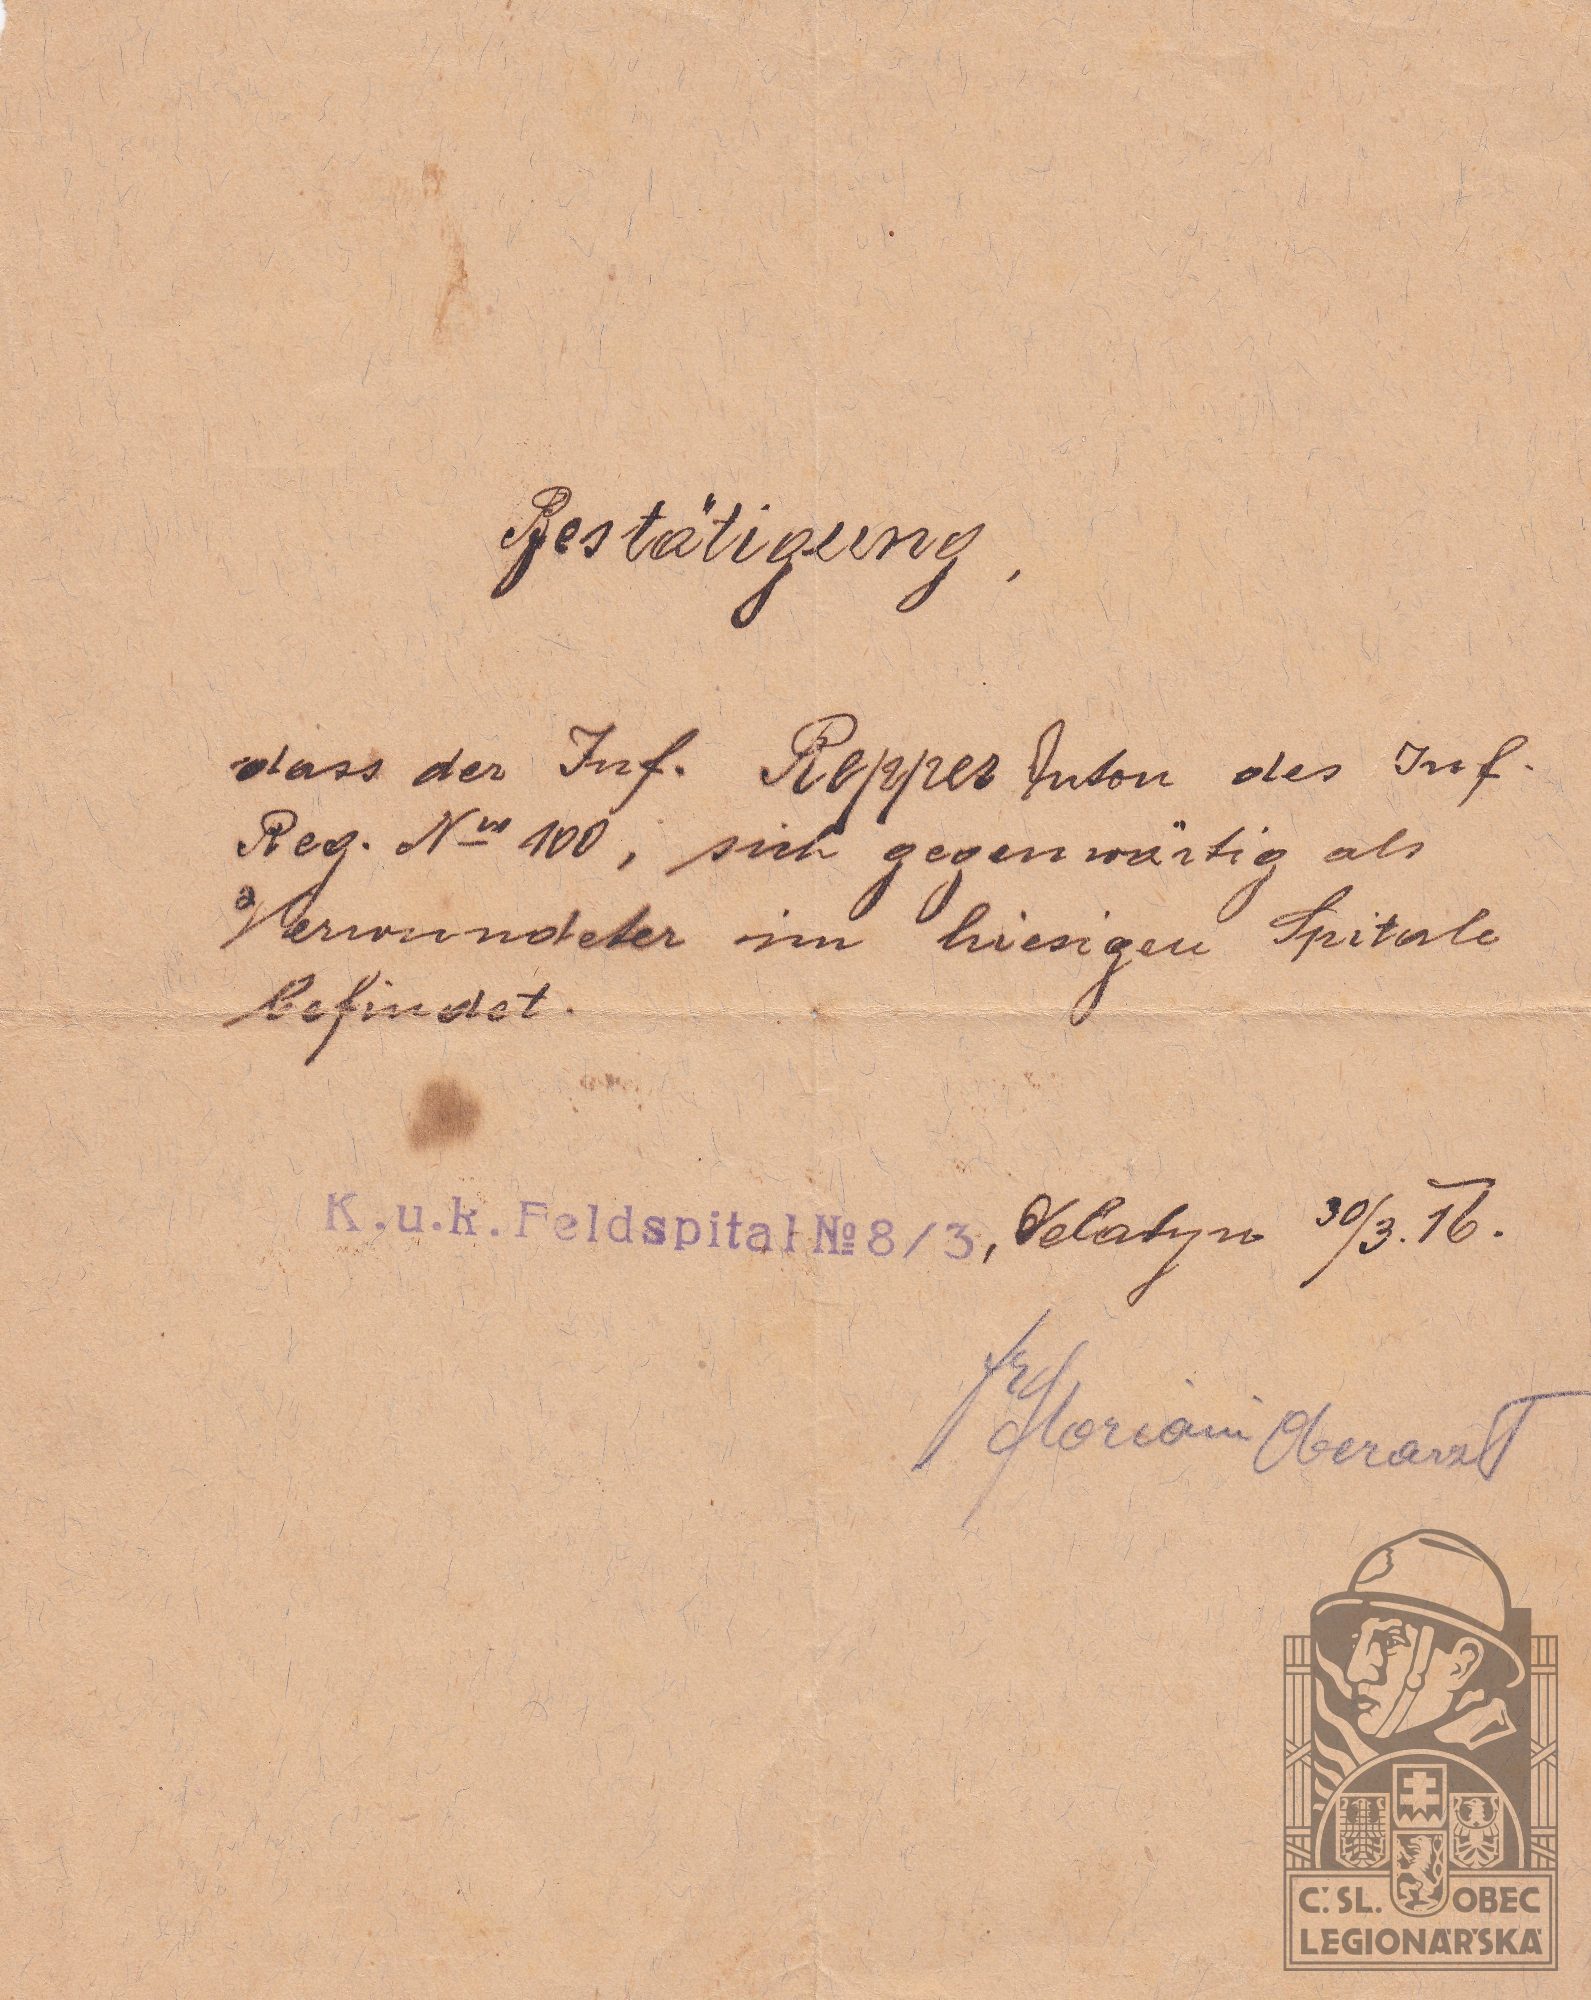 Bestätigung,
dass der Inf. Repper Anton des Inf.
Reg. Nro 100, sich gegenwärtig als
Verwundeter im hiesigen Spitale
befindet.
K.u.k. Feldspital № 8/3, Delatyn 30/3. 16.
Oberarzt
Č. SL. OBEC
LEGIONÁŘSKÁ